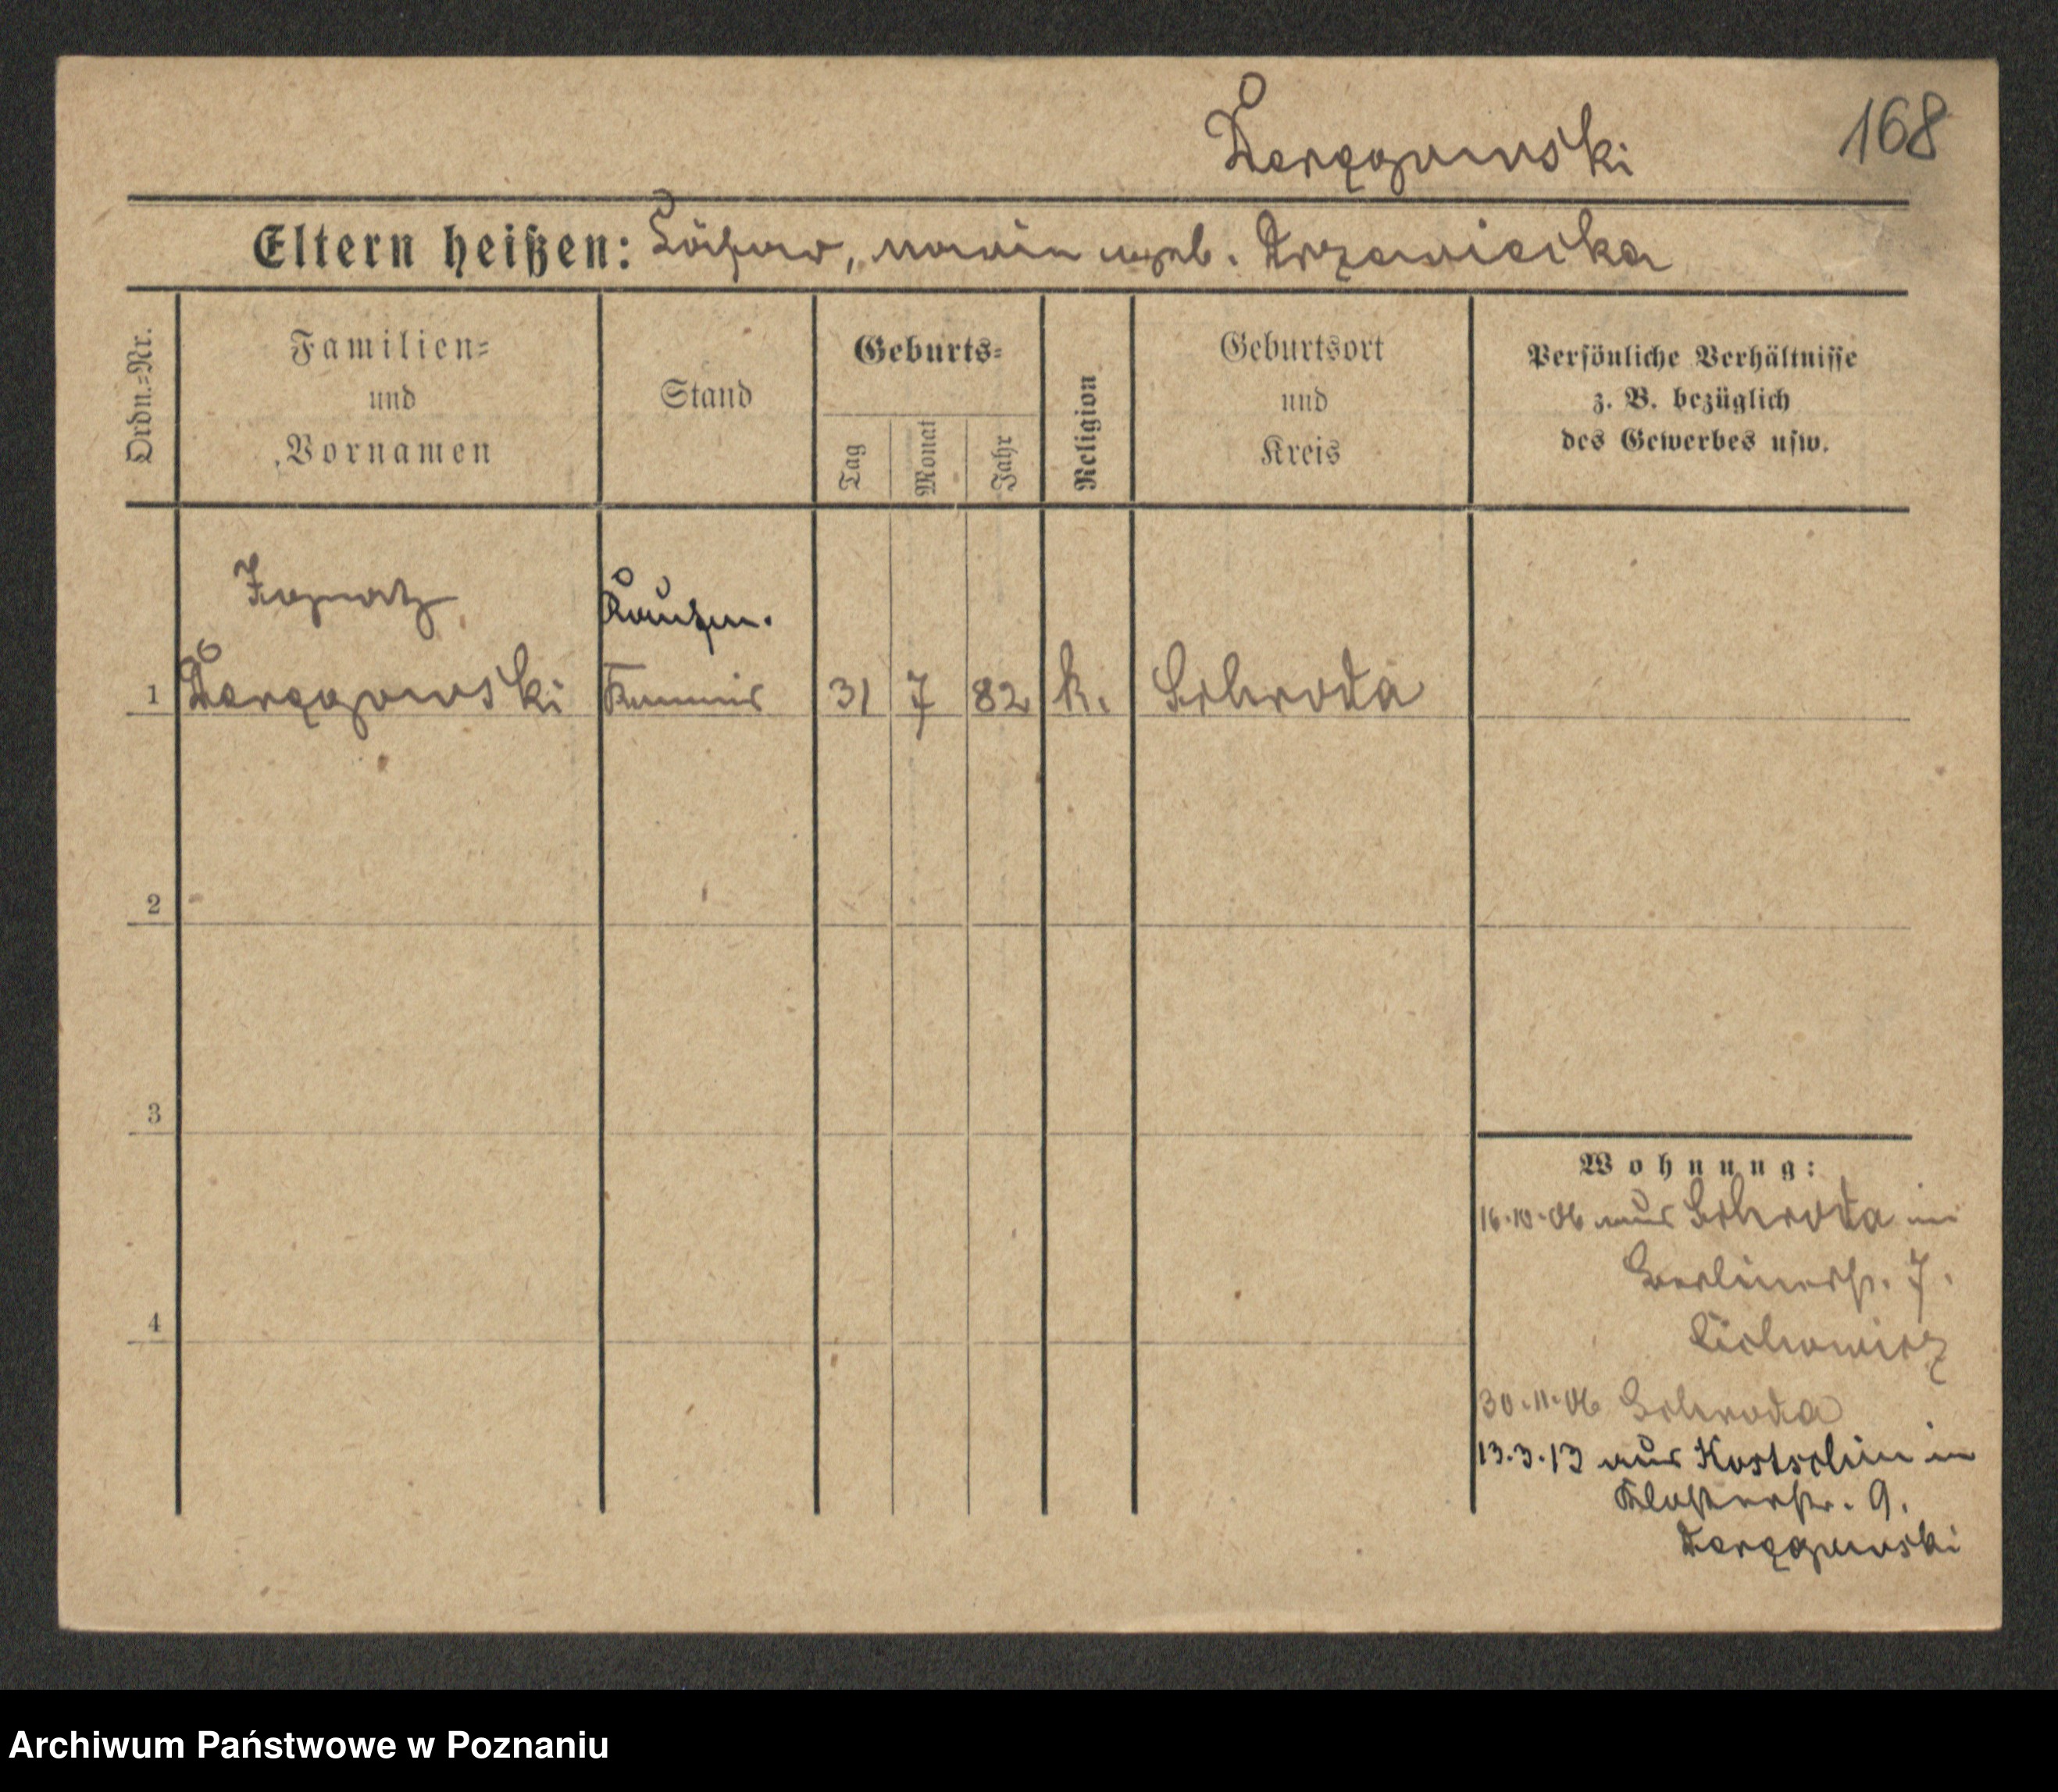 Dereggowski
168
Eltern heißen: geb. Drzewiecka
Ordn.=Nr.
Familien=
und
Vornamen
Stand
Geburts=
Tag
Monat
Jahr
Religion
Geburtsort
und
Kreis
Persönliche Verhältnisse
z. B. bezüglich
des Gewerbes usw.
Ignatz
Kaufm.
1 Kommis 31 7 82 k. Schroda
2
3
4
Wohnung:
16.10.06 aus Schroda in
Berlinerstr. 7.
Cichowicz
30.11.06 Schroda
13.3.13 aus Kostschin in
Klosterstr. 9.
Archiwum Państwowe w Poznaniu